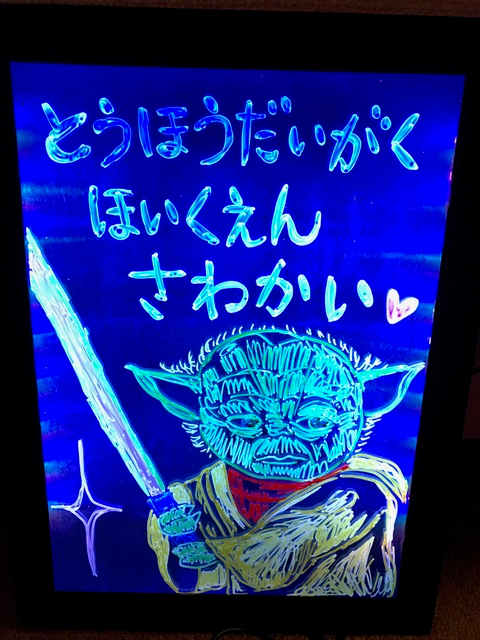 とうほうだいがく
ほいくえん
さわかい♡